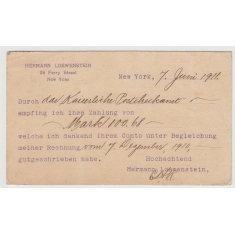 HERMANN LOEWENSTEIN
26 Ferry Street
New York
New York, 7. Juni 1911.
Durch das Kaiserliche Postscheckamt
empfing ich Ihre Zahlung von
Mark 100.68
welche ich dankend Ihrem Conto unter Begleichung
meiner Rechnung vom 7 Dezember, 1910,
gutgeschrieben habe. Hochachtend
Hermann Loewenstein,